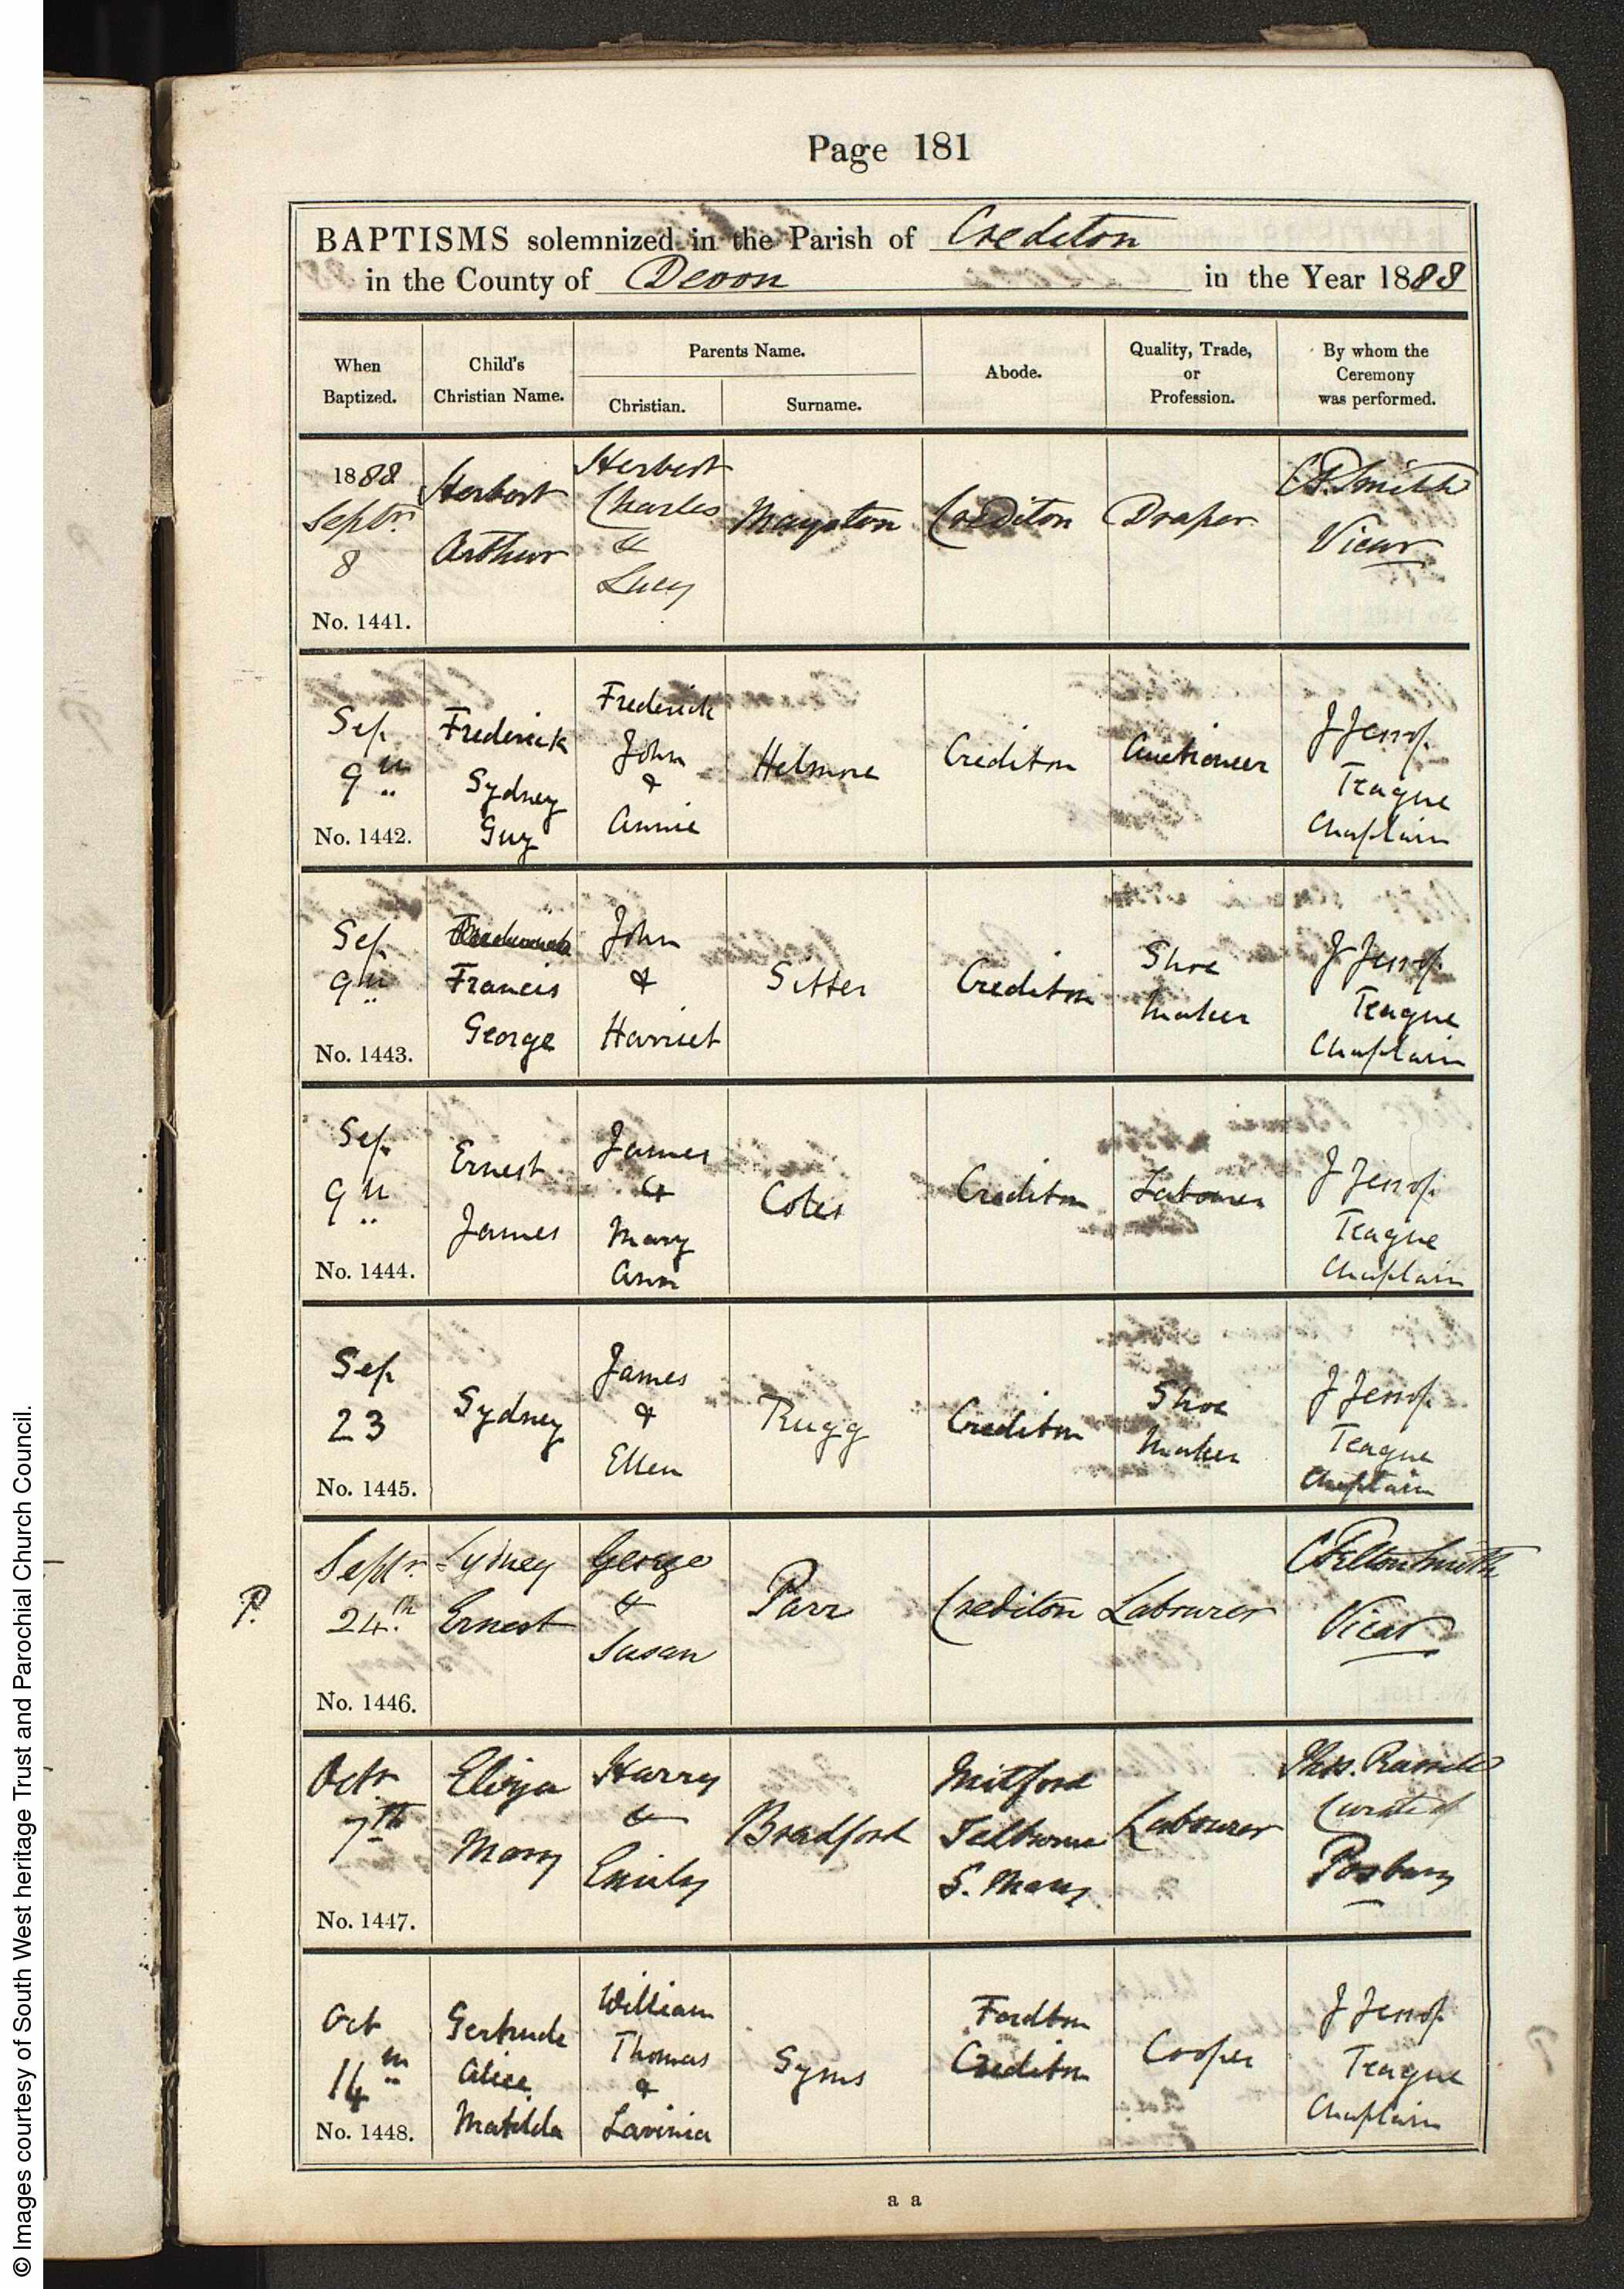 Page 181
BAPTISMS solemnized in the Parish of Crediton
in the County of Devon in the Year 1888
When Baptized.
Child's Christian Name.
Parents Name.
Christian.
Surname.
Abode.
Quality, Trade, or Profession.
By whom the Ceremony was performed.
1888
Septr.
8
No. 1441.
Herbert
Arthur
Herbert
Charles
&
Lucy
Crediton
Draper
Smith
Vicar
Sep
9th
No. 1442.
Frederick
Sydney
Guy
Frederick
John
&
Annie
Helmore
Crediton
Auctioneer
J Jessop
Teague
Chaplain
Sep
9th
No. 1443.
Francis
George
John
&
Harriet
Sitter
Crediton
Shoe
Maker
J Jessop
Teague
Chaplain
Sep
9th
No. 1444.
Ernest
James
James
&
Mary
Ann
Coles
Crediton
Labourer
J Jessop
Teague
Chaplain
Sep
23
No. 1445.
Sydney
James
&
Ellen
Rugg
Crediton
Shoe
Maker
J Jessop
Teague
Chaplain
P.
Septr.
24th
No. 1446.
Sydney
Ernest
George
&
Susan
Parr
Crediton
Labourer
C Felton Smith
Vicar
Octr
7th
No. 1447.
Eliza
Mary
Harry
&
Emily
Bradford
S. Mary
Labourer
Curate of
Posbury
Oct
14th
No. 1448.
Gertrude
Alice
Matilda
William
Thomas
&
Lavinia
Syms
Fordton
Crediton
Cooper
J Jessop
Teague
Chaplain
a a
© Images courtesy of South West heritage Trust and Parochial Church Council.